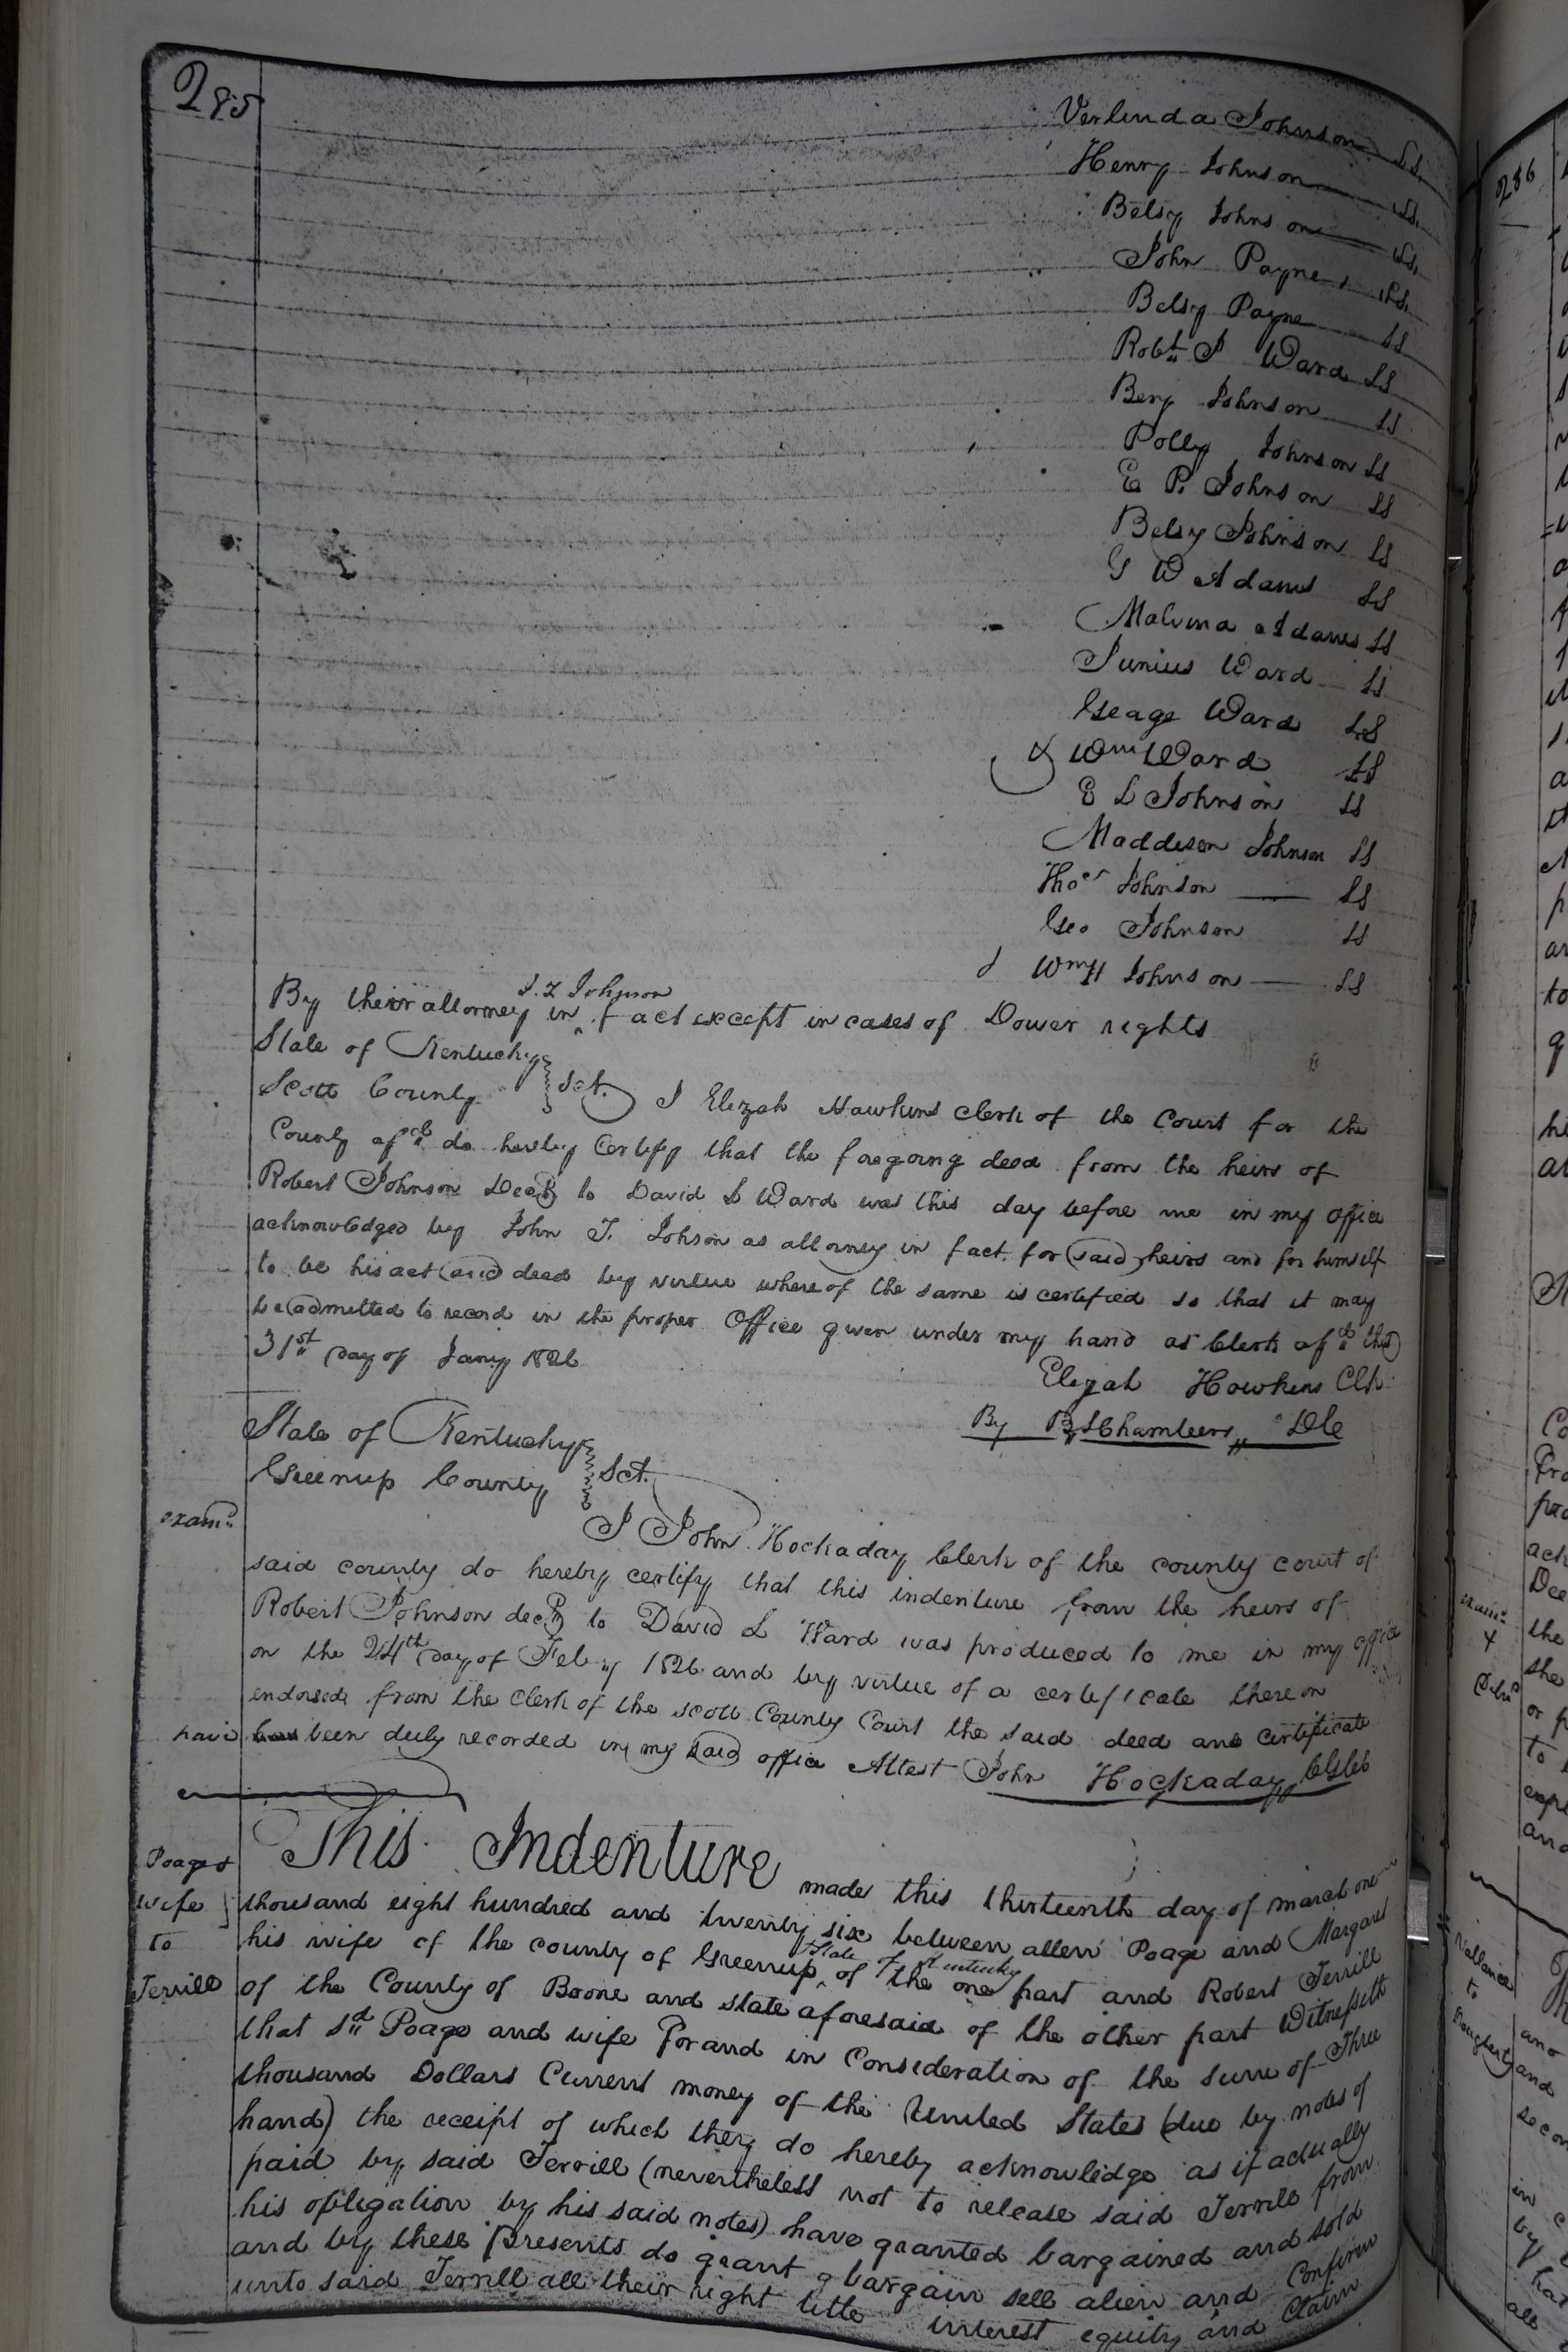 285
Verlinda Johnson LS.
Henry Johnson LS.
Betsy Johnson LS.
John Payne LS.
Betsy Payne LS
Robt J Ward LS
Benj Johnson LS
Polly Johnson LS
E P. Johnson LS
Betsy Johnson LS
G W Adams LS
Malvina Adams LS
Junius Ward LS
Geage Ward LS
& Wm Ward LS
E L Johnson LS
Maddison Johnson LS
Thos Johnson LS
Geo Johnson LS
& WmH Johnson LS
By their attorney in ^ J. T Johnson fact except in cases of Dower rights
State of Kentucky
Scott County Sct. I Elizah Hawkins Clerk of the Court for the
County afsd do hereby Certify that the foregoing deed from the heirs of
Robert Johnson Decd to David L Ward was this day before me in my office
acknowledged by John T. Johson as attorney in fact for said heirs and for himself
to be his act and deed by virtue where of the same is certified so that it may
be admitted to record in the proper Office given under my hand as Clerk afsd this
31st day of Jany 1826
Elizah Howkins Clk
By B Chambers DC
State of Kentucky
Greenup County Sct.
exam
I John Hockaday Clerk of the county court of
said county do hereby certify that this indenture from the heirs of
Robert Johnson decd to David L Ward was produced to me in my office
on the 24th day of Feby 1826 and by virtue of a certificate thereon
endorsed from the Clerk of the Scott County Court the said deed and certificate
have has been duly recorded in my said office Attest John Hockaday
Poage &
wife
to
Terrill
This Indenture made this thirteenth day of march one
thousand eight hundred and twenty six between allen Poage and Margaret
his wife of the county of Greenup ^ State of Kentucky of the one part and Robert Terrill
of the County of Boone and state aforesaid of the other part Witnesseth
that sd Poage and wife For and in Consideration of the sum of Three
thousand Dollars Current money of the United States (due by notes of
hand) the receipt of which they do hereby acknowledge as if actually
paid by said Terrill (nevertheless not to release said Terrill from
his obligation by his said notes) have granted bargained and sold
and by these presents do grant bargain sell alien and Confirm
unto said Terrill all their right title interest equity and Claim
286